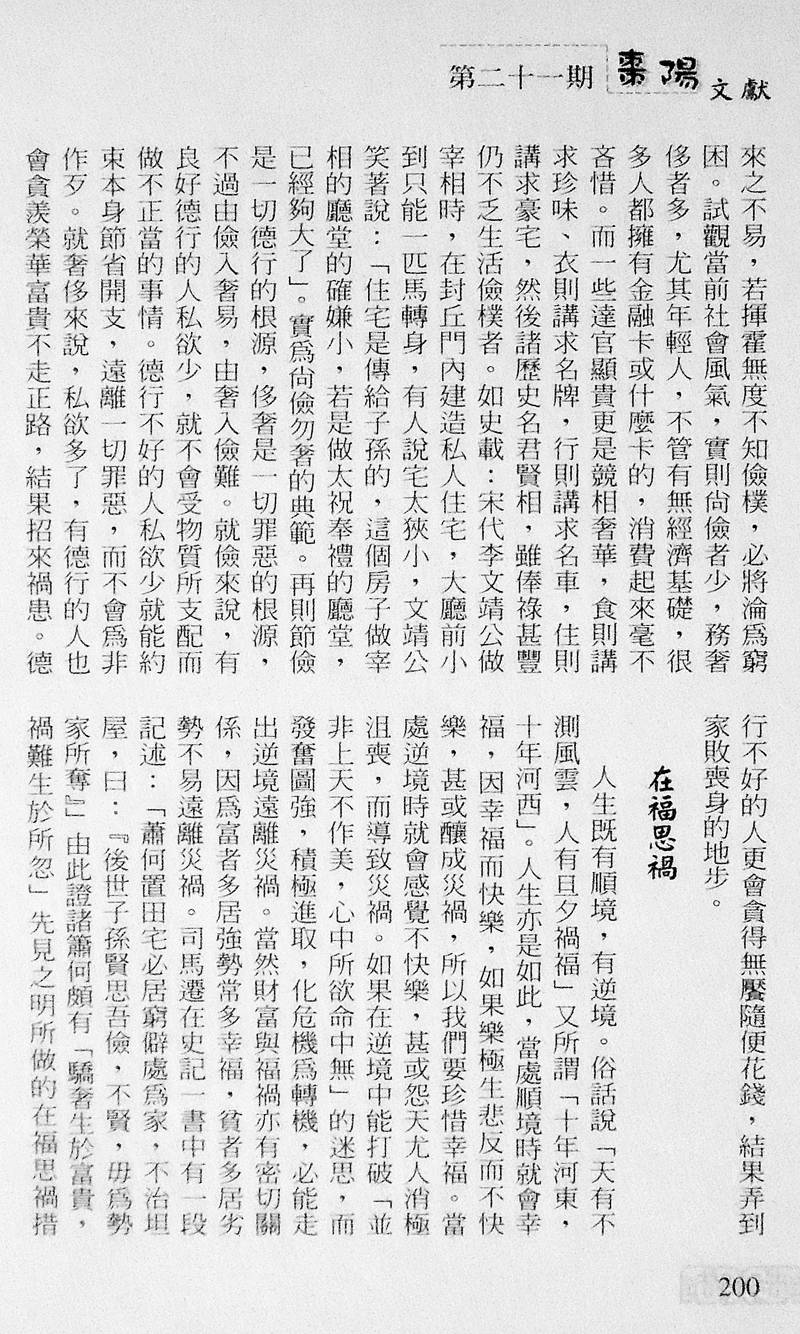 第二十一期 棗陽文獻
來之不易，若揮霍無度不知儉樸，必將淪爲窮
困。試觀當前社會風氣，實則尚儉者少，務奢
侈者多，尤其年輕人，不管有無經濟基礎，很
多人都擁有金融卡或什麼卡的，消費起來毫不
吝惜。而一些達官顯貴更是競相奢華，食則講
求珍味、衣則講求名牌，行則講求名車，住則
講求豪宅，然後諸歷史名君賢相，雖俸祿甚豐
仍不乏生活儉樸者。如史載：宋代李文靖公做
宰相時，在封丘門內建造私人住宅，大廳前小
到只能一匹馬轉身，有人說宅太狹小，文靖公
笑著說：「住宅是傳給子孫的，這個房子做宰
相的廳堂的確嫌小，若是做太祝奉禮的廳堂，
已經夠大了」。實爲尚儉勿奢的典範。再則節儉
是一切德行的根源，侈奢是一切罪惡的根源，
不過由儉入奢易，由奢入儉難。就儉來說，有
良好德行的人私欲少，就不會受物質所支配而
做不正當的事情。德行不好的人私欲少就能約
束本身節省開支，遠離一切罪惡，而不會爲非
作歹。就奢侈來說，私欲多了，有德行的人也
會貪羨榮華富貴不走正路，結果招來禍患。德
行不好的人更會貪得無饜隨便花錢，結果弄到
家敗喪身的地步。
在福思禍
人生既有順境，有逆境。俗話說「天有不
測風雲，人有旦夕禍福」又所謂「十年河東，
十年河西」。人生亦是如此，當處順境時就會幸
福，因幸福而快樂，如果樂極生悲反而不快
樂，甚或釀成災禍，所以我們要珍惜幸福。當
處逆境時就會感覺不快樂，甚或怨天尤人消極
沮喪，而導致災禍。如果在逆境中能打破「並
非上天不作美，心中所欲命中無」的迷思，而
發奮圖強，積極進取，化危機爲轉機，必能走
出逆境遠離災禍。當然財富與福禍亦有密切關
係，因爲富者多居強勢常多幸福，貧者多居劣
勢不易遠離災禍。司馬遷在史記一書中有一段
記述：「蕭何置田宅必居窮僻處爲家，不治坦
屋，曰：『後世子孫賢思吾儉，不賢，毋爲勢
家所奪』」由此證諸簫何頗有「驕奢生於富貴，
禍難生於所忽」先見之明所做的在福思禍措
200